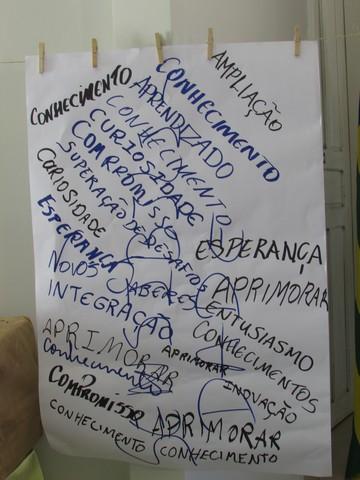 AMPLIAÇÃO
CONHECIMENTO
CONHECIMENTO
APRENDIZADO
CONHECIMENTO
CURIOSIDADE
COMPROMISSO
SUPERAÇÃO DE DESAFIOS
CURIOSIDADE
ESPERANÇA
ESPERANÇA
NOVOS SABERES
APRIMORAR
INTEGRAÇÃO
ENTUSIASMO
CONHECIMENTOS
APRIMORAR
APRIMORAR
Conhecimento
INOVAÇÃO
Compromisso
APRIMORAR
CONHECIMENTO
CONHECIMENTO